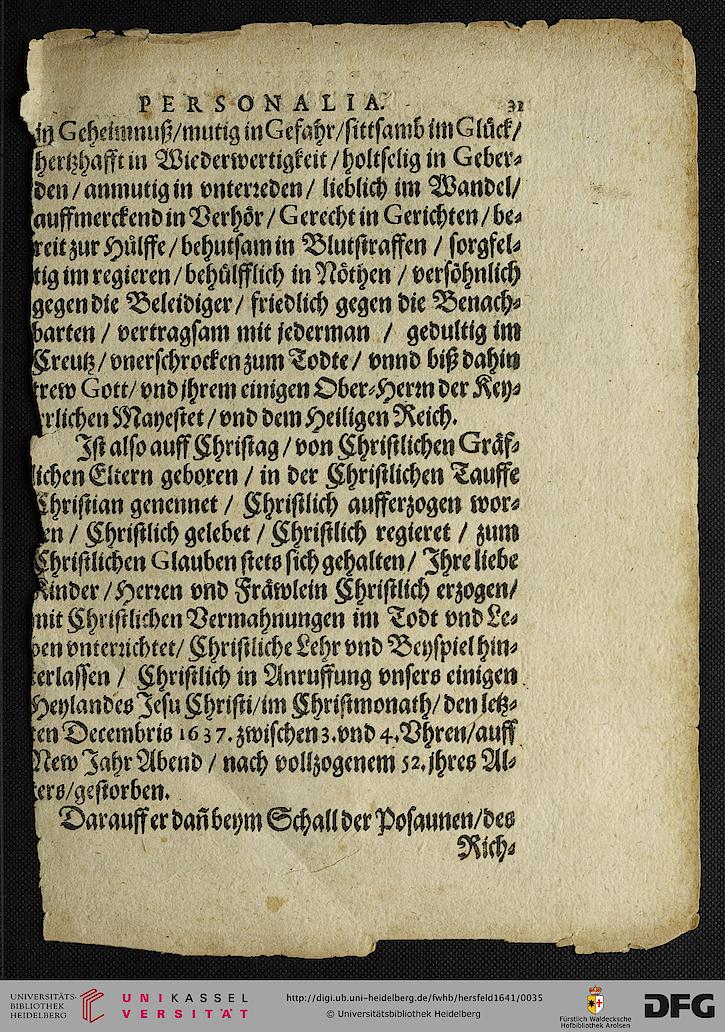 PERSONALIA. 31
in Geheimnuß/mutig in Gefahr/sittsamb im Glück/
hertzhafft in Wiederwertigkeit / holtselig in Geber⸗
den / anmutig in vnterreden / lieblich im Wandel/
auffmerckend in Verhör / Gerecht in Gerichten / be⸗
reit zur Hülffe / behutsam in Blutstraffen / sorgfel⸗
tig im regieren / behülfflich in Nöthen / versöhnlich
gegen die Beleidiger / friedlich gegen die Benach⸗
barten / vertragsam mit jederman / gedultig im
Creutz / vnerschrocken zum Todte / vnnd biß dahin
trew Gott/ vnd jhrem einigen Ober⸗Herrn der Key⸗
rrlichen Mayestet / vnd dem Heiligen Reich.
Ist also auff Christag / von Christlichen Gräf⸗
lichen Eltern geboren / in der Christlichen Tauffe
Christian genennet / Christlich aufferzogen wor⸗
en / Christlich gelebet / Christlich regieret / zum
Christlichen Glauben stets sich gehalten / Ihre liebe
Kinder / Herren vnd Fräwlein Christlich erzogen/
mit Christlichen Vermahnungen im Todt vnd Le⸗
ben vnterrichtet/ Christliche Lehr vnd Beyspiel hin⸗
terlassen / Christlich in Anruffung vnsers einigen
Heylandes Jesu Christi/im Christmonath/ den letz⸗
ten Decembris 1637. zwischen 3. vnd 4. Vhren/auff
New Jahr Abend / nach vollzogenem 52. jhres Al⸗
ters/gestorben.
Darauff er dañ beym Schall der Posaunen/des
Rich⸗
UNIVERSITÄTS-
BIBLIOTHEK
HEIDELBERG
UNIKASSEL
VERSITÄT
http://digi.ub.uni-heidelberg.de/fwhb/hersfeld1641/0035
© Universitätsbibliothek Heidelberg
Fürstlich Waldecksche
Hofbibliothek Arolsen
DFG